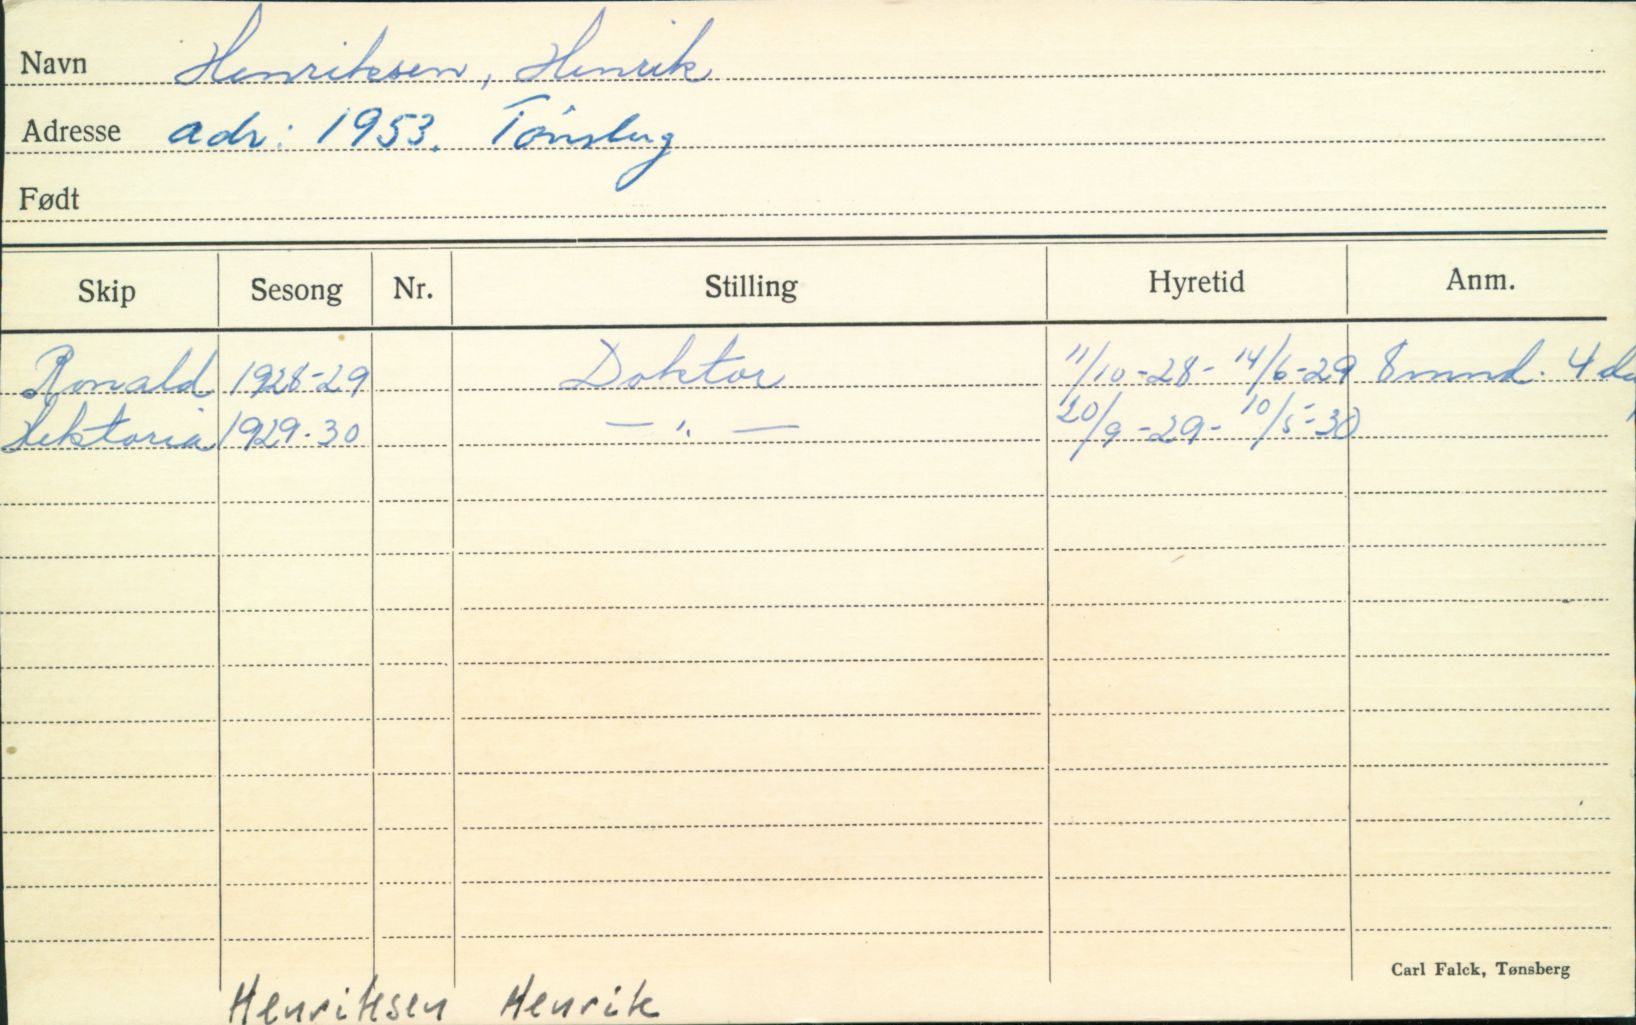 Navn Henriksen, Henrik
Adresse adr: 1953. Tønsberg
Født
Skip Sesong Nr. Stilling Hyretid Anm.
Ronald 1928-29 Doktor 11/10-28-14/6-29 8 mnd. 4 da
Hektoria 1929-30 — " — 20/9-29-10/5-30
Carl Falck, Tønsberg
Henriksen Henrik